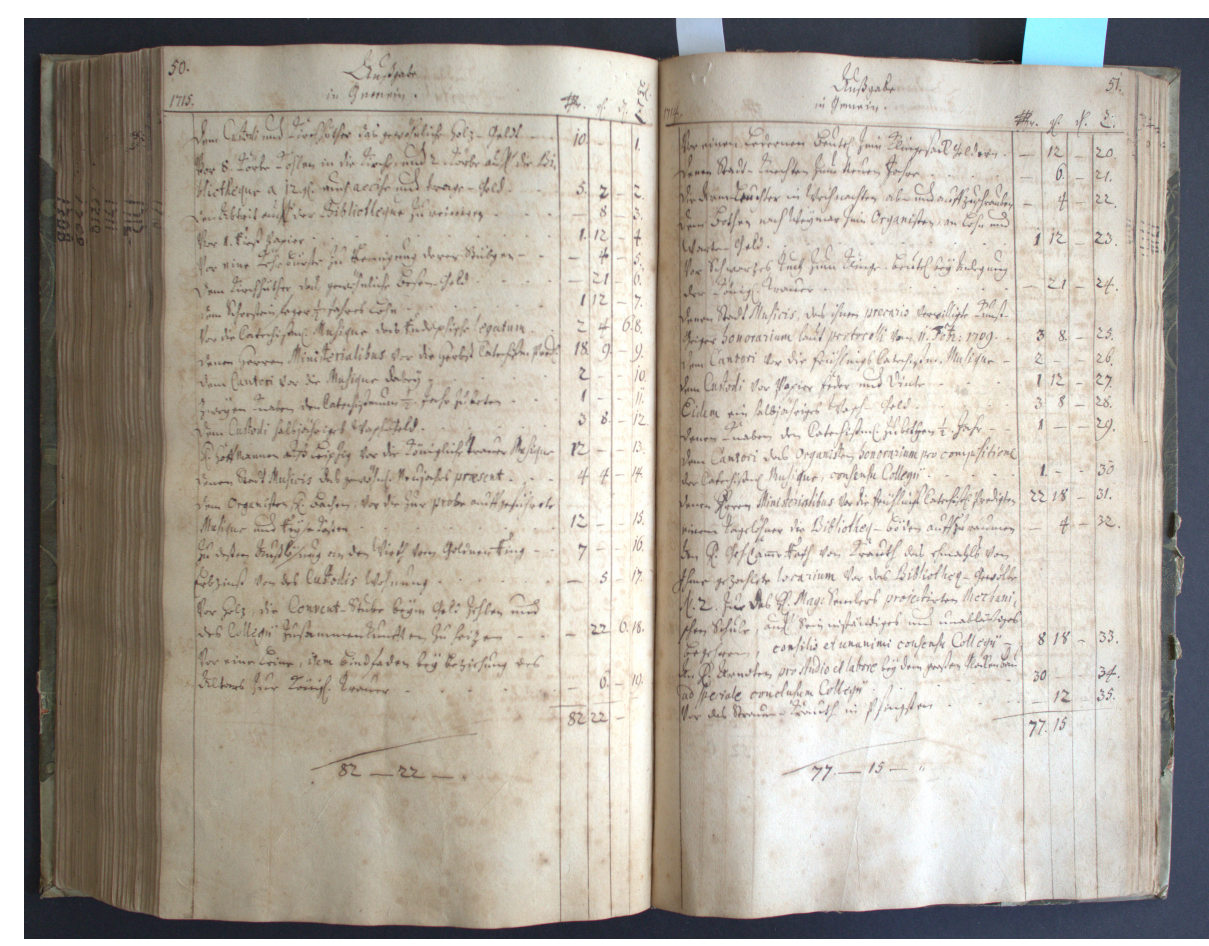 50.
Außgabe
in Gemein.
1715.
Thlr. gl. d.
Dem Custodi und Kirchüther das gewöhnliche Holz-Geldt 10. — 1.
Vor 8. Körbe Kohlen in die Kirch, und 2. Körbe auff die Bi-
bliotheque a 12. gl. auch accise und trage-Geld 5. 2 — 2.
Den Abtritt auff der Bibliotheque zu reinigen — 8 — 3.
Vor 1. Rieß Papier 1. 12 — 4.
Vor eine Bürste zu Reinigung derer Stühle — 4 — 5.
Dem Kirchüther das gewöhnliche Besem-Geld — 21 — 6.
Dem Schornstein feger ½ Jahres Lohn 1 12 — 7.
Vor die Catechismus Musique das legatum 2 4 6. 8.
Denen Herren Ministerialibus vor die Herbst Catechism. Pred. 18 9 — 9.
Dem Cantori vor die Musique dabey 2 — 10.
Zweyen Knaben den Catechismum ½ Jahr zu beten 1 — 11.
Dem Custodi halbjähriges Wachsgeld 3 8 — 12.
H. Hoffmannen auß Leipzig vor die Königliche Trauer Musique 12 — 13.
Denen Stadt Musicis das gewöhnl. Neujahrs præsent 4 4 — 14.
Dem Organisten H. Bachen, vor die zur probe auffgeführte
Musique und Reise Kosten 12 — 15.
Zu deßen Außlösung an den Wirth vom Goldnen Ring 7 — 16.
Erbzinß von des Custodis Wohnung — 5 — 17.
Vor Holz, die Convent-Stube beym Geld zehlen und
des Collegii Zusammenkunfften zu heizen — 22 6. 18.
Vor eine Leine, item Bindfaden bey beziehung des
Altars zur Königl. Trauer — 6. — 19.
82 22 —
82 — 22 — .
51.
Außgabe
in Gemein.
Thlr. gl. d.
Vor einen ledernen Beutel zum Klingesäckl Geldern — 12 — 20.
Denen Stadt-Knechten zum Neuen Jahre — 6. — 21.
Die Kronleuchter in Weihnachten ab- und auffzuschrauben — 4 — 22.
Dem Bothen nach Weymar zum Organisten an Lohn und
Warte-Geld. 1 12 — 23.
Vor Schwarzes Tuch zum Klinge-beutel bey Anlegung
der Königl. Trauer — 21 — 24.
Denen Stadt Musicis, das ihnen precario verwilligte Kunst-
Geiger honorarium laut protocoll vom 11. Febr: 1709. 3 8 — 25.
Dem Cantori vor die frühlings Catechism. Musique 2 — 26.
Dem Custodi vor Papier feder und Dinte 1 12 — 27.
Eidem ein halbjähriges Wachs-Geld 3 8 — 28.
Denen Knaben den Catechism. zu bethen ½ Jahr 1 — 29.
Dem Cantori des Organisten honorarium pro compositione
der Catechism. Musique, consensu Collegii 1. — 30
Denen Herren Ministerialibus vor die frühlings Catechism. Predigten 22 18 — 31.
einem Tagelöhner die Bibliotheq-boden auffzuräumen 4 — 32.
Den H. Geh. Cammer Rath von Krauth das ehmahls von
Ihme gezahlte locarium vor das Bibliotheq-Gewölbe
N. 2. zur des H. Mag. Semlers projectirten Mechani-
schen Schule, auff beständiges und unabläßiges
begehren, consilio et unanimi consensu Collegii 8 18 — 33.
An H. Arndten pro studio et labore bey dem großen 30 — 34.
ad speciale conclusum Collegii
Vor das Streu-Krauth in Pfingsten — 12 — 35.
77. 15
77. — 15 —